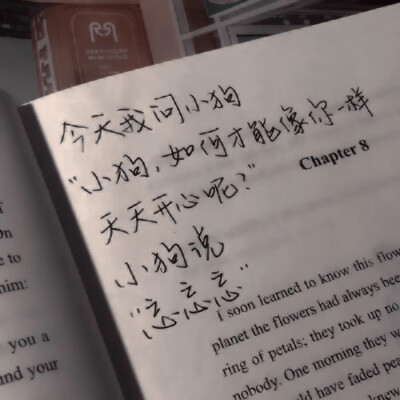 今天我问小狗
"小狗,如何才能像你一样
天天开心呢?"
小狗说
"忘忘忘"
On
e to
him:
you a
and your
Chapter 8
I soon learned to know this flow
planet the flowers had always bee
ring of petals; they took up no
nobody. One morning they w
have faded peac
knew